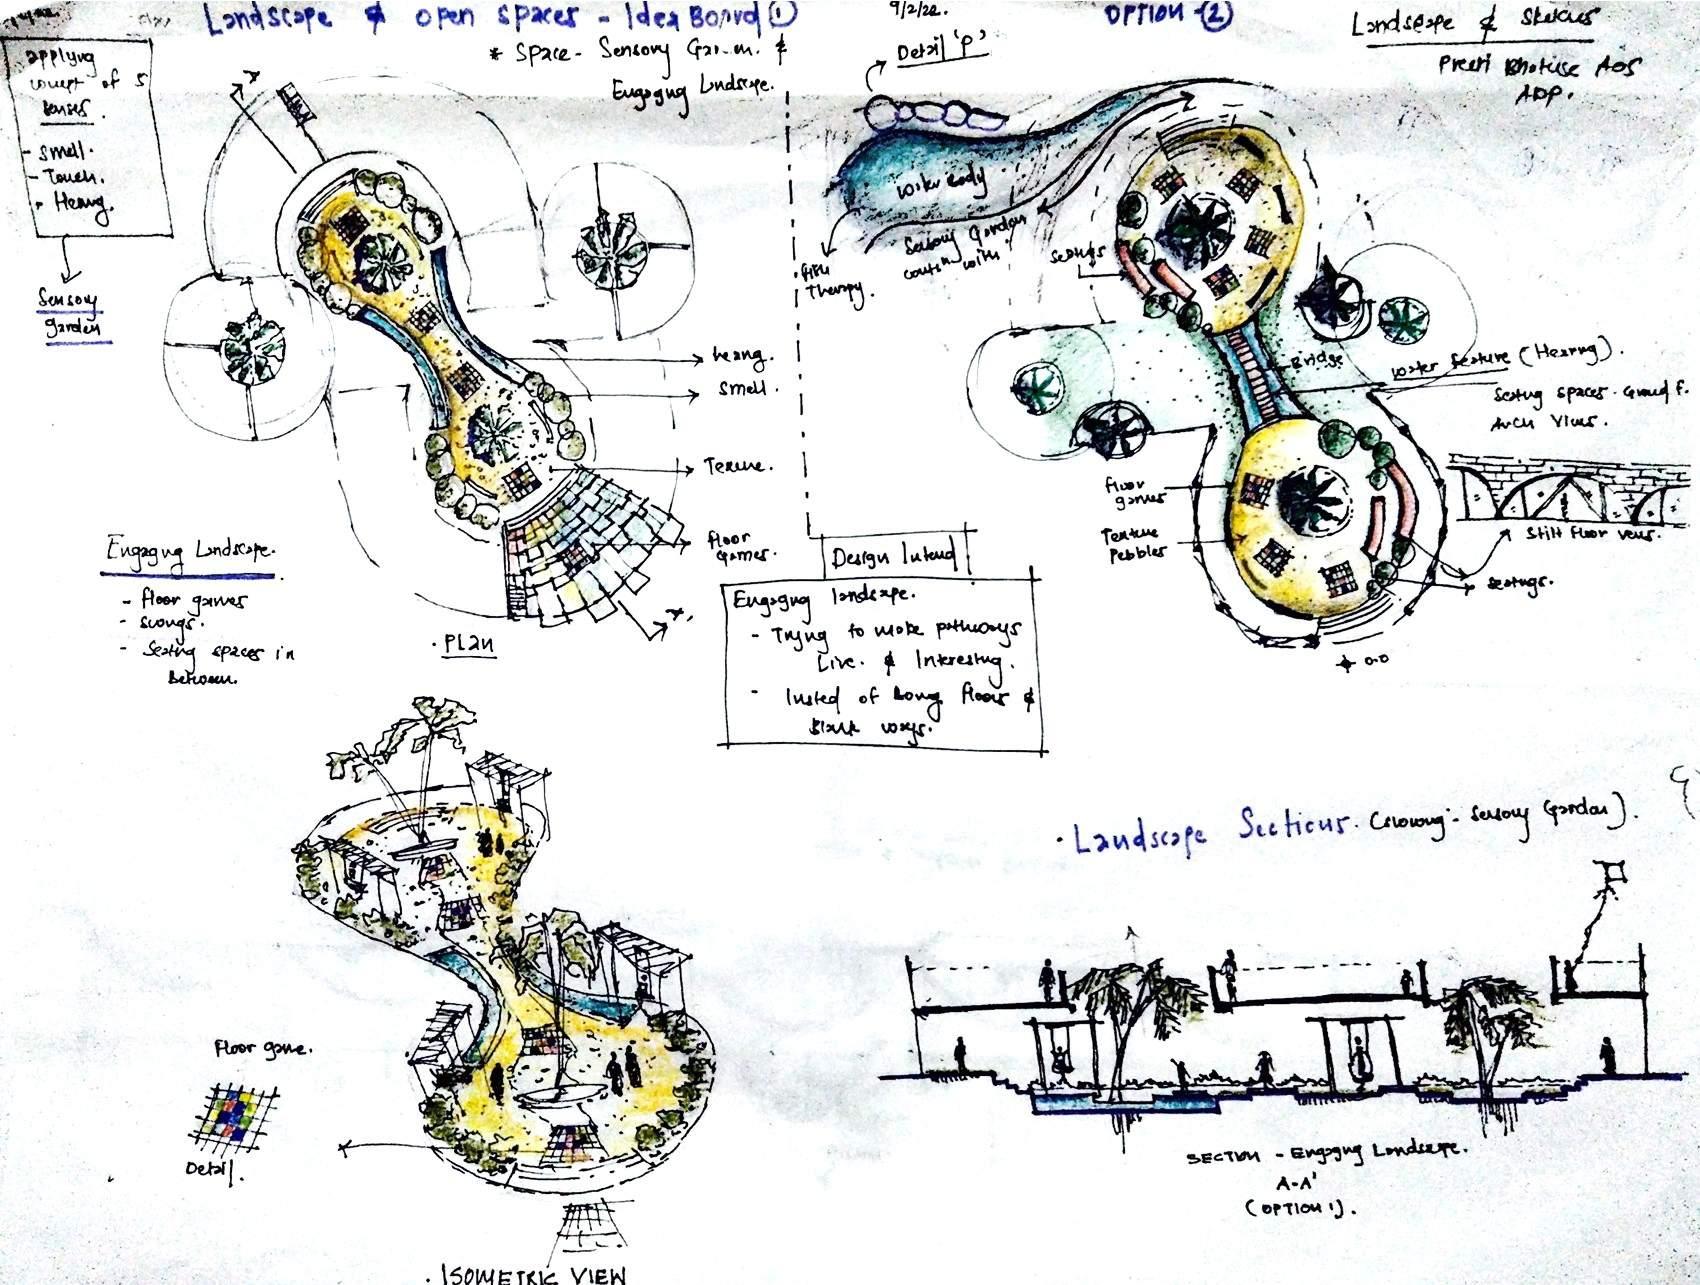 Landscape & open spaces - Idea Board ①
* Space - Sensory Garm. &
Engagng Lndscape.
9/2/22.
OPTION - ②
Landscape & Sketches
Preeti Bhatuse A05
ADP.
applyng
concept of 5
senses.
- Smell.
- Touch.
- Hearng.
Sensory
garden
hearng.
Smell.
Texture.
floor
games.
Engagng Landscape.
- floor games
- swings.
- Seatng spaces in
between.
. PLAN
Detail 'P'
water body
Sensory Garden
with
fish
Therapy.
Seatngs
Bridge
water feature (Hearng).
Seatng spaces - Ground f.
Arch views.
floor
games
Texture
Pebbles
Stilt floor views.
Seatngs.
0.0
Design Intend
Engagng landscape.
- Tryng to make pathways
Live. & Interestng.
- Insted of Long floors &
Blank ways.
. Landscape Sections. (showing - Sensory Garden).
Floor game.
Detail.
. ISOMETRIC VIEW
SECTION - Engagng Landscape.
A-A'
(OPTION 1).